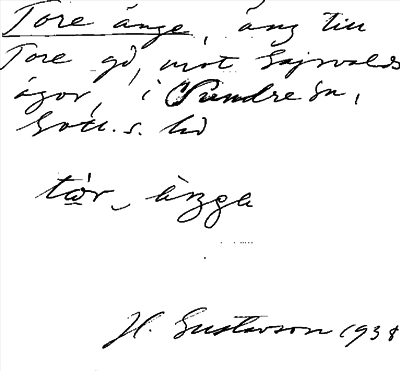 Tore änge, äng till
Tore gd, mot Sajvalds
ägor, i Sundre sn,
Gotl. s. hd
tǫ̀r_ ä̀ŋgɐ
H. Gustavson 1938